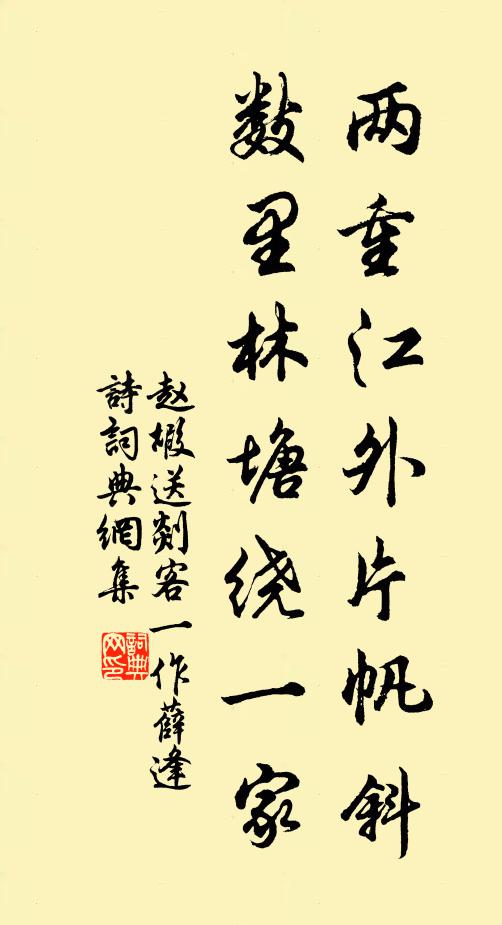 两重江外片帆斜
数里林塘绕一家
赵嘏送剡客一作薛逢
詩詞典網集
詞典网印